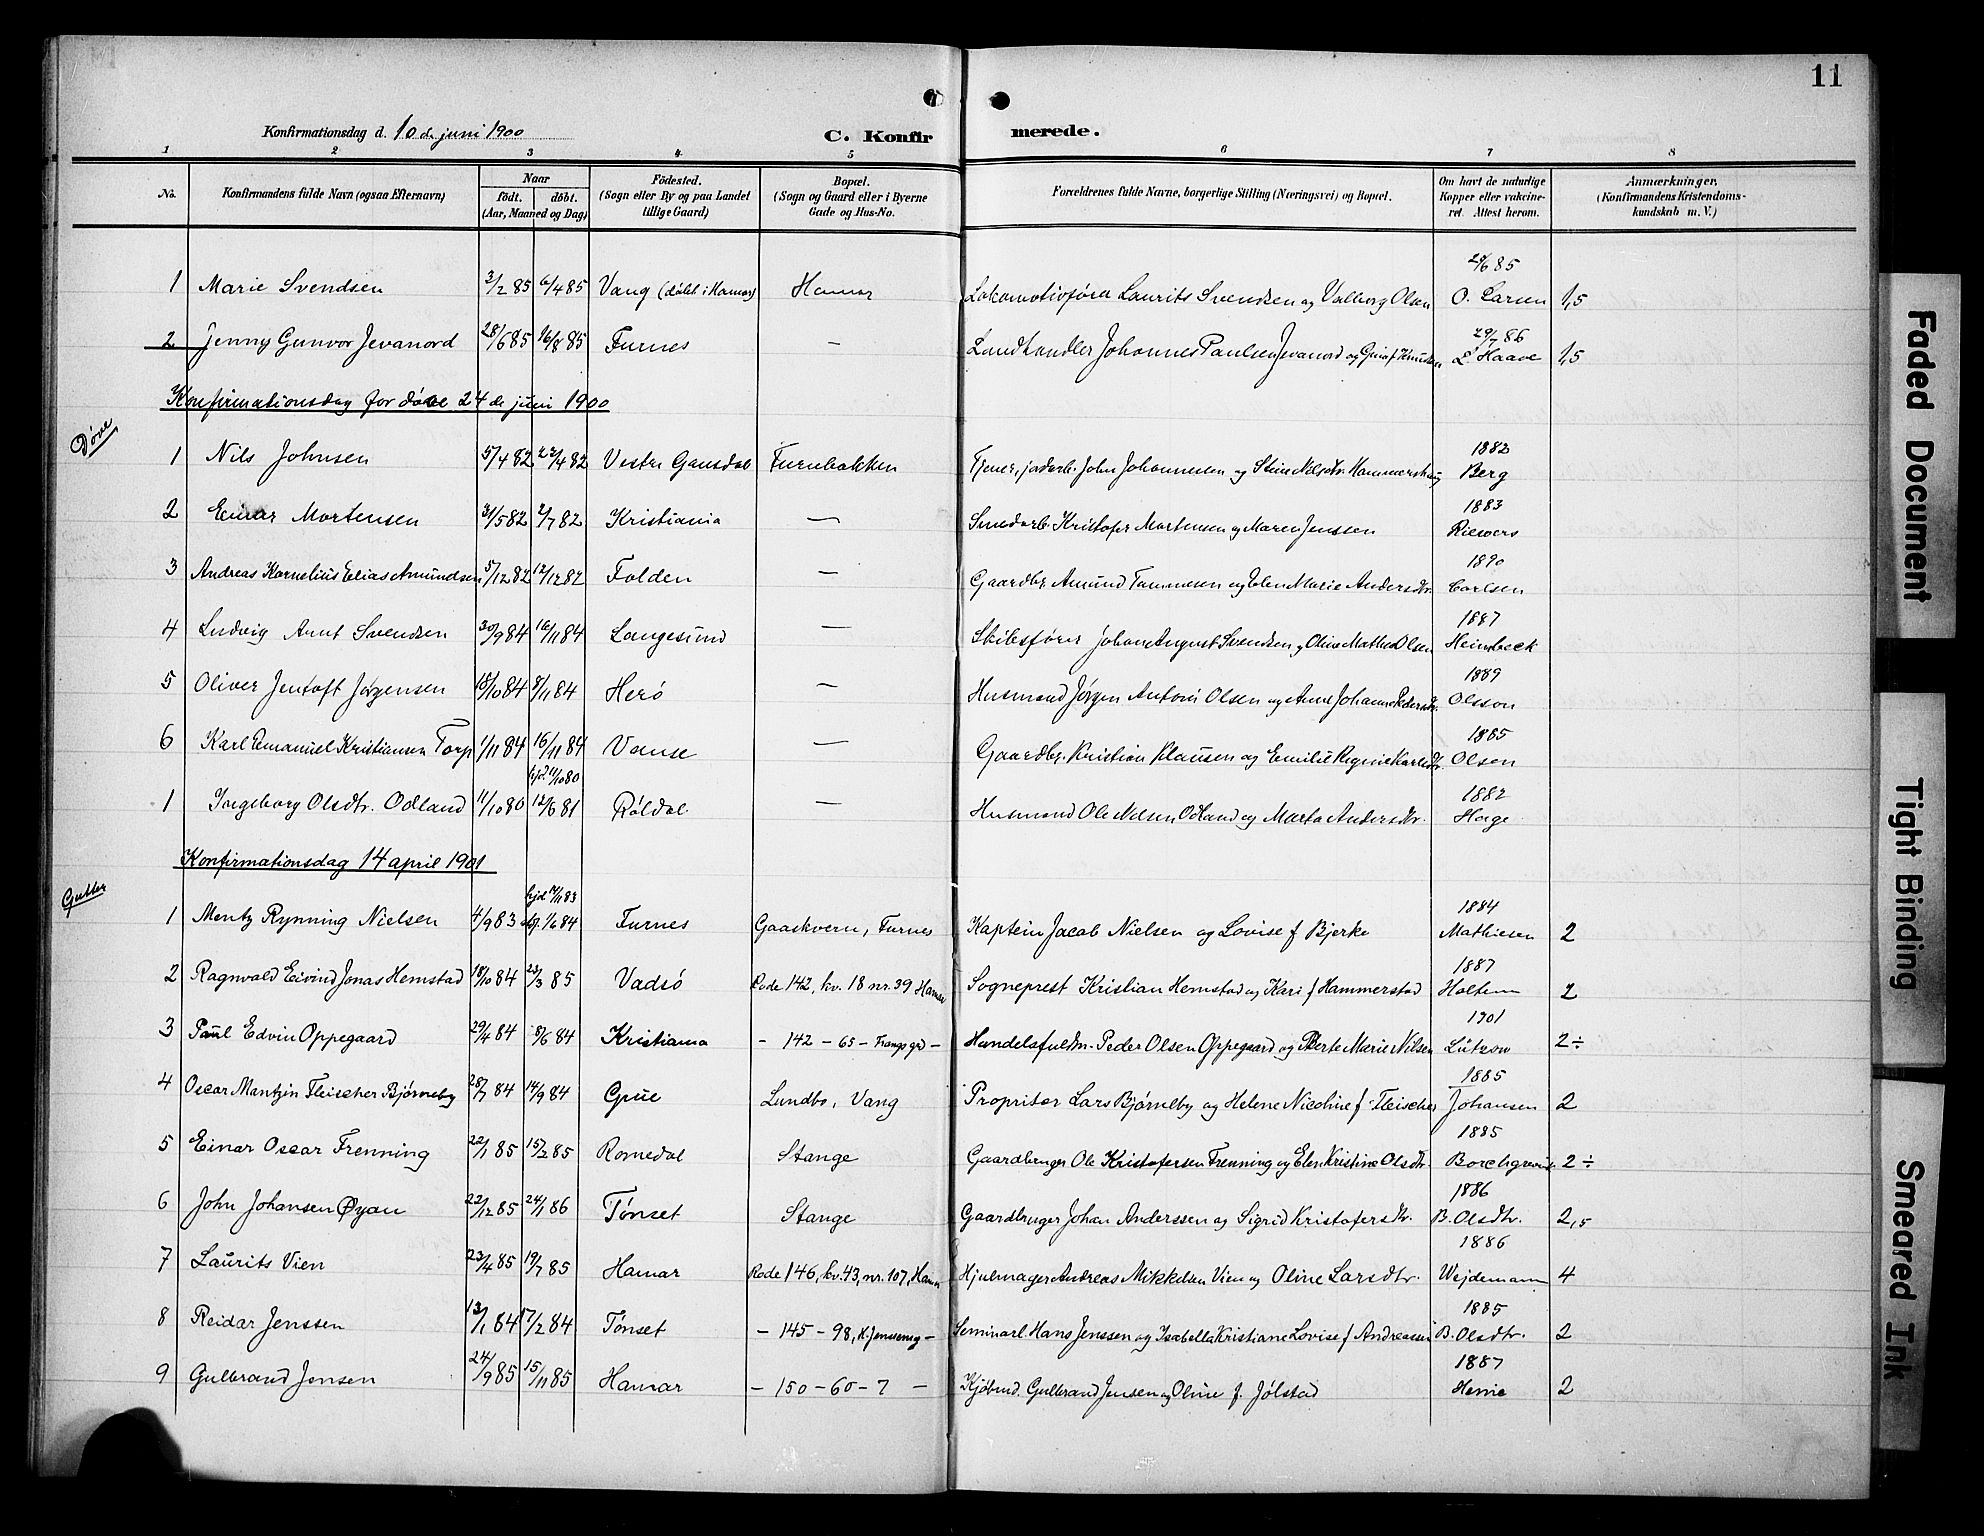 11
Konfirmationsdag d. 10 de juni 1900
C. Konfirmerede.
1 2 3 4 5 6 7 8
No. Konfirmandens fulde Navn (ogsaa Efternavn) Naar født. døbt. (Aar, Maaned og Dag) Fødested. (Sogn eller By og paa Landet tillige Gaard) Bopæl. (Sogn og Gaard eller i Byerne Gade og Hus-No. Forældrenes fulde Navne, borgerlige Stilling (Næringsvei) og Bopæl. Om havt de naturlige Kopper eller vakcineret. Attest herom. Anmærkninger, (Konfirmandens Kristendomskundskab m. V.)
1 Marie Svendsen 3/2 85 6/4 85 Vang (døbt i Hamar) Hamar Lokomotivfører Laurits Svendsen og Valborg Olsen 24/6 85 O. Larsen 1,5
2 Jenny Gunvor Jevanord 28/6 85 16/8 85 Furnes — Landhandler Johannes Paulsen Jevanord og f. Knudsen 29/7 86 L. Haave 1,5
Konfirmationsdag for døve 24 de juni 1900
Døve
1 Nils Johnsen 5/4 82 22/4 82 Vestre Gausdal Furubakken John Johannesen og Stine Nilsdtr. Hammershaug 1882 Berg
2 Einar Mortensen 31/5 82 2/7 82 Kristiania — Kristofer Mortensen og Maren Jenssen 1883 Riewers
3 Andreas Kornelius Elias Amundsen 5/12 82 12/12 82 Folden — Gaardbr. Amund Tommesen og Elen Marie Andersdtr. 1890 Carlsen
4 Ludvig Aunt Svendsen 30/9 84 16/11 84 Langesund — Skibsfører Johan August Svendsen og Oline Mathea Olsen 1887 Heimbeck
5 Oliver Jentoft Jørgensen 18/10 84 8/11 84 Herø — Husmand Jørgen Antoni Olsen og Anne Johanna Pedersdtr. 1889 Olsson
6 Karl Emanuel Kristiansen Torp 1/11 84 16/11 84 Vanse — Gaardbr. Kristian Klausen og Emilie Regine Karlsdtr. 1885 Olsen
1 Ingeborg Olsdtr. Odland 11/10 80 hjd. 11/10 80 12/6 81 Røldal — Husmand Ole Nelsen Odland og Marta Andersdtr. 1882 Hage
Konfirmationsdag 14 april 1901
Gutter
1 Mentz Rynning Nielsen 4/9 83 hjd. 11/11 83 1/6 84 Furnes Gaaskvern, Furnes Kaptein Jacob Nielsen og Lovise f Bjerke 1884 Mathiesen 2
2 Ragnvald Eivind Jonas Hemstad 18/10 84 23/3 85 Vadsø Rode 142, kv. 18 nr. 39 Hamar Sogneprest Kristian Hemstad og Kari f Hammerstad 1887 Holtem 2
3 Paul Edvin Oppegaard 29/4 84 8/6 84 Kristiania — 142 — 65 — — Handelsfuldm. Peder Olsen Oppegaard og Berte Marie Nilsen 1901 Lützow 2÷
4 Oscar Mantzin Fleischer Bjørneby 28/7 84 14/9 84 Grue Lundbo, Vang Propritær Lars Bjørneby og Helene Nicoline f Fleischer 1885 Johansen 2
5 Einar Oscar Frenning 22/1 85 15/2 85 Romedal Stange Gaardbruger Ole Kristofersen Frenning og Elen Kristine Olsdtr. 1885 Borchgrevink 2÷
6 John Johansen Øyan 22/12 85 24/1 86 Tønset Stange Gaardbruger Johan Anderssen og Sigrid Kristofersdtr. 1886 B. Olsdtr. 2,5
7 Laurits Vien 23/4 85 19/7 85 Hamar Rode 146, kv. 43, nr. 107, Hamar Hjulmager Andreas Mikkelsen Vien og Oline Larsdtr. 1886 Wejdemann 4
8 Reidar Jenssen 13/1 84 17/2 84 Tønset — 145 — 98, — Seminarl. Hans Jenssen og Isabella Kristiane Lovise f Andreassen 1885 B. Olsdtr. 2
9 Gulbrand Jensen 24/9 85 15/11 85 Hamar — 150 — 60 — 7 — Kjøbmd. Gulbrand Jensen og Oline f. Jølstad 1887 Henie 2
Faded Document
Tight Binding
Smeared Ink